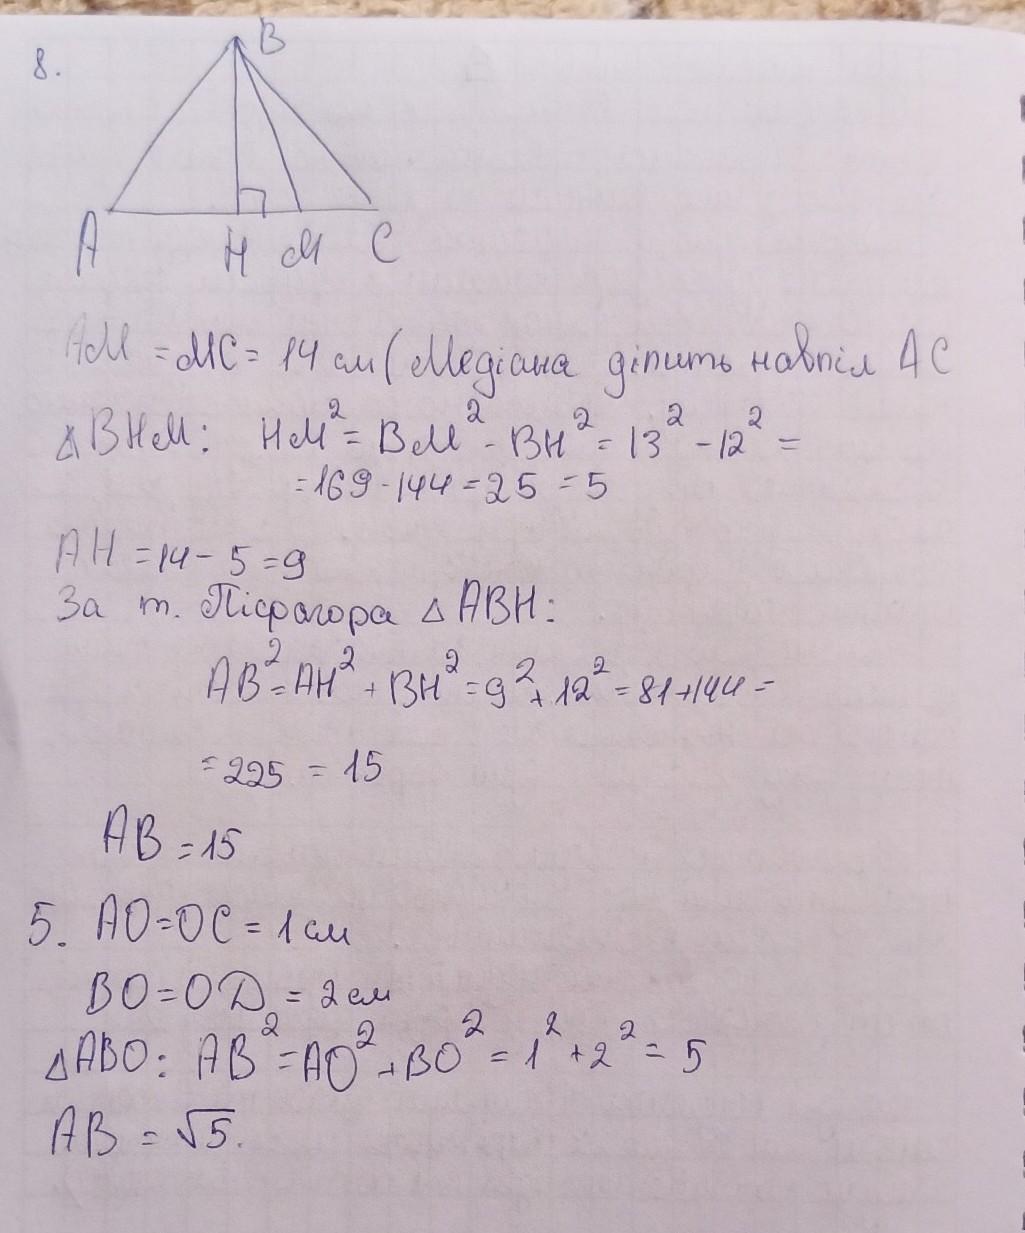 8.
B
A H M C
AM = MC = 14 см (Медіана ділить навпіл AC
△BHM: HM² = BM² - BH² = 13² - 12² =
= 169 - 144 = 25 = 5
AH = 14 - 5 = 9
За т. Піфагора △ABH:
AB² = AH² + BH² = 9² + 12² = 81 + 144 =
= 225 = 15
AB = 15
5. AO = OC = 1 см
BO = OD = 2 см
△ABO: AB² = AO² + BO² = 1² + 2² = 5
AB = √5.